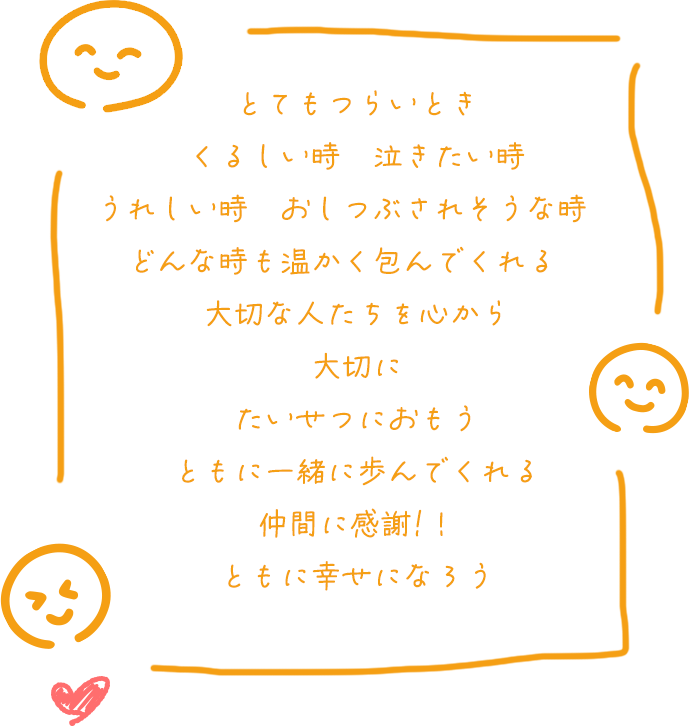 とてもつらいとき
くるしい時　泣きたい時
うれしい時　おしつぶされそうな時
どんな時も温かく包んでくれる
大切な人たちを心から
大切に
たいせつにおもう
ともに一緒に歩んでくれる
仲間に感謝！！
ともに幸せになろう